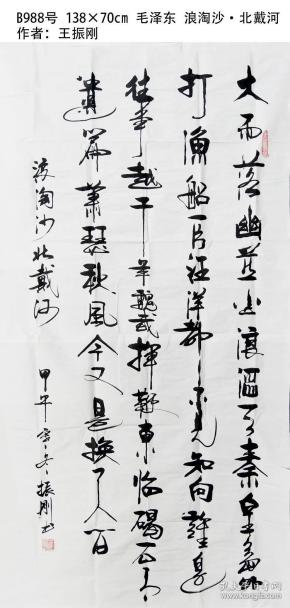 B988号 138×70cm 毛泽东 浪淘沙·北戴河
作者：王振刚
大雨落幽燕白浪滔天秦皇岛外
打漁船一片汪洋都不见知向誰边
往事越千年魏武揮鞭东临碣石有
遺篇萧瑟秋風今又是换了人间
浪淘沙北戴河
甲午寒冬振刚书